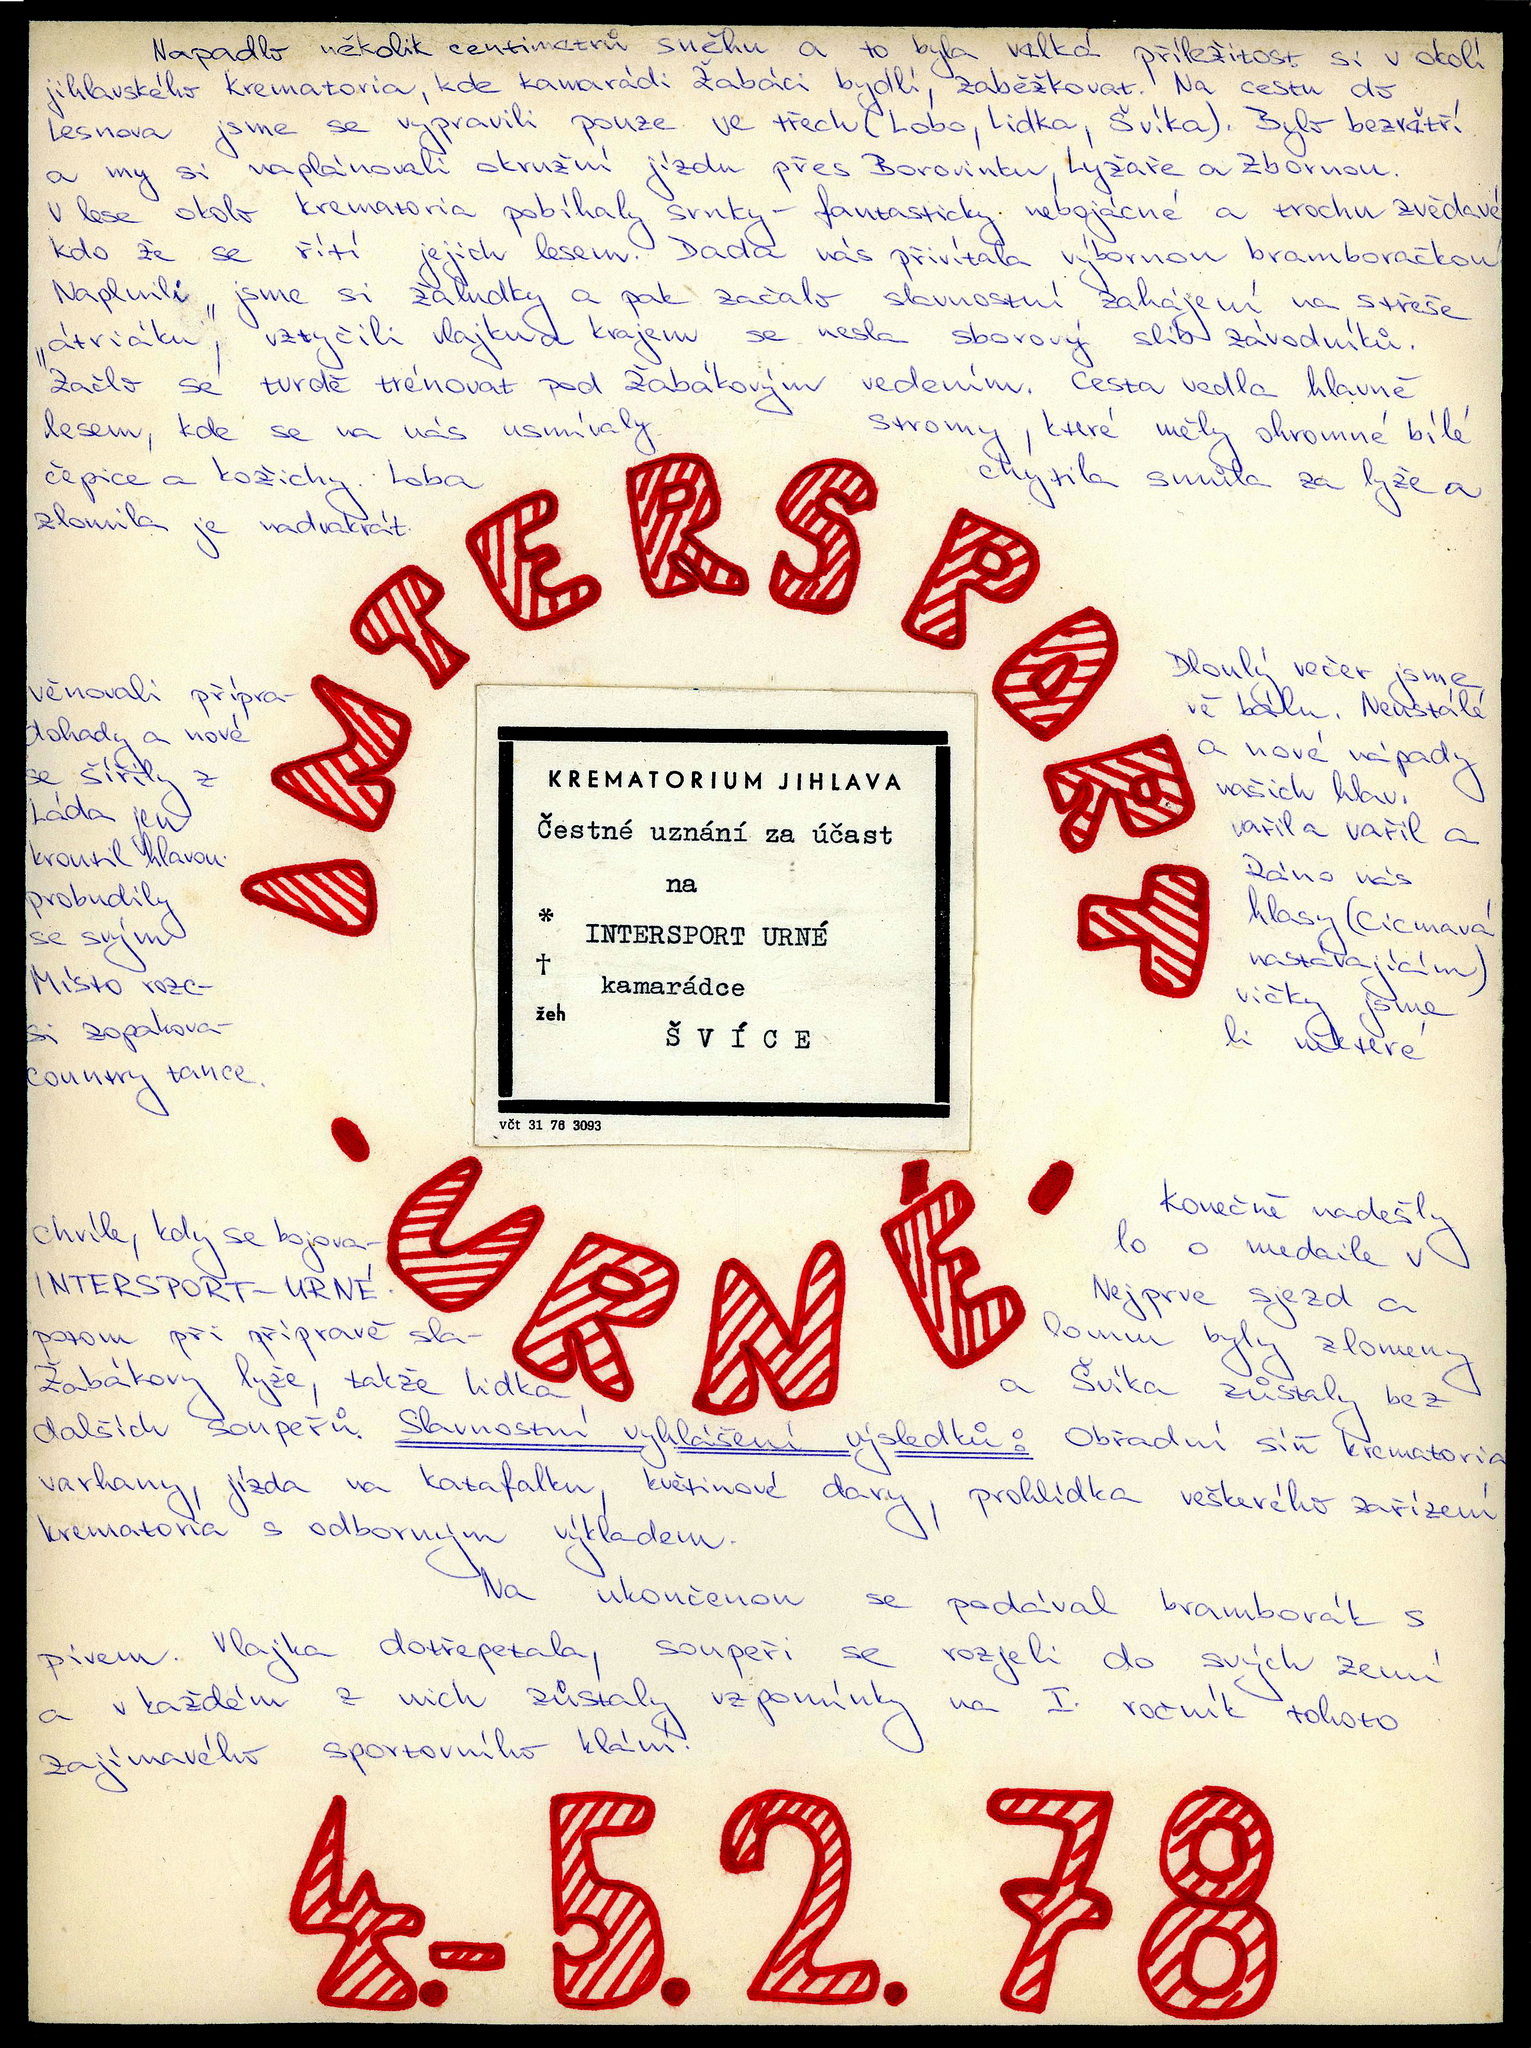 Napadlo několik centimetrů sněhu a to byla velká příležitost si v okolí
jihlavského krematoria, kde kamarádi Žabáci bydlí, zaběžkovat. Na cestu do
Lesnova jsme se vypravili pouze ve třech (Lobo, Lidka, Švíka). Bylo bezvětří
a my si naplánovali okružní jízdu přes Borovinku, Lyžaře a Zbornou.
V lese okolo krematoria pobíhaly srnky - fantasticky nebojácné a trochu zvědavé
kdo že se řítí jejich lesem. Dada nás přivítala výbornou bramboračkou
Naplnili jsme si žaludky a pak začalo slavnostní zahájení na střeše
„átriáku", vztyčili vlajku a krajem se nesla sborový slib závodníků.
Začlo se tvrdě trénovat pod Žabákovým vedením. Cesta vedla hlavně
lesem, kde se na nás usmívaly stromy, které měly ohromné bílé
čepice a kožichy. Loba chytila smůla za lyže a
zlomila je nadvakrát.
INTERSPORT
Dlouhý večer jsme
věnovali přípra-
vě bálu. Neustálé
dohady a nové
a nové nápady
se šířily z
našich hlav.
Láda jen
vařil a vařil a
kroutil hlavou.
Ráno nás
probudily
hlasy (Cicmavá
se svým
nastávajícím)
Místo rozc-
vičky jsme
si zopakova-
li některé
country tance.
KREMATORIUM JIHLAVA
Čestné uznání za účast
na
*
INTERSPORT URNÉ
†
kamarádce
žeh
ŠVÍCE
včt 31 76 3093
'URNÉ'
Konečně nadešly
chvíle, kdy se bojova-
lo o medaile v
INTERSPORT-URNÉ.
Nejprve sjezd a
potom při přípravě sla-
lomu byly zlomeny
Žabákovy lyže, takže Lidka a Švíka zůstaly bez
dalších soupeřů. Slavnostní vyhlášení výsledků: Obřadní síň krematoria
varhany, jízda na katafalku, květinové dary, prohlídka veškerého zařízení
krematoria s odborným výkladem.
Na ukončenou se podával bramborák s
pivem. Vlajka dotřepetala, soupeři se rozjeli do svých zemí
a v každém z nich zůstaly vzpomínky na I. ročník tohoto
zajímavého sportovního klání.
4.-5.2.78